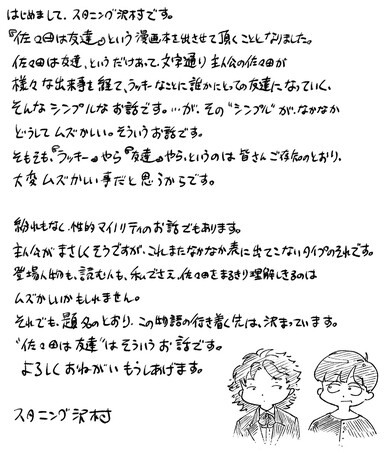 はじめまして、スタニング沢村です。
『佐々田は友達』という漫画本を出させて頂くこととなりました。
佐々田は友達、というだけあって、文字通り主人公の佐々田が
様々な出来事を経て、ラッキーなことに誰かにとっての友達になっていく、
そんなシンプルなお話です。…が、その“シンプル”が、なかなか
どうしてムズかしい。そういうお話です。
そもそも、『ラッキー』やら『友達』やら、というのは皆さんご存知のとおり、
大変ムズかしい事だと思うからです。
紛れもなく、性的マイノリティのお話でもあります。
主人公がまさしくそうですが、これまたなかなか表に出てこないタイプのそれです。
登場人物も、読む人も、私でさえ、佐々田をまるきり理解しきるのは
ムズかしいかもしれません。
それでも、題名のとおり、この物語の行き着く先は、決まっています。
“佐々田は友達”はそういうお話です。
よろしくおねがいもうしあげます。
スタニング沢村